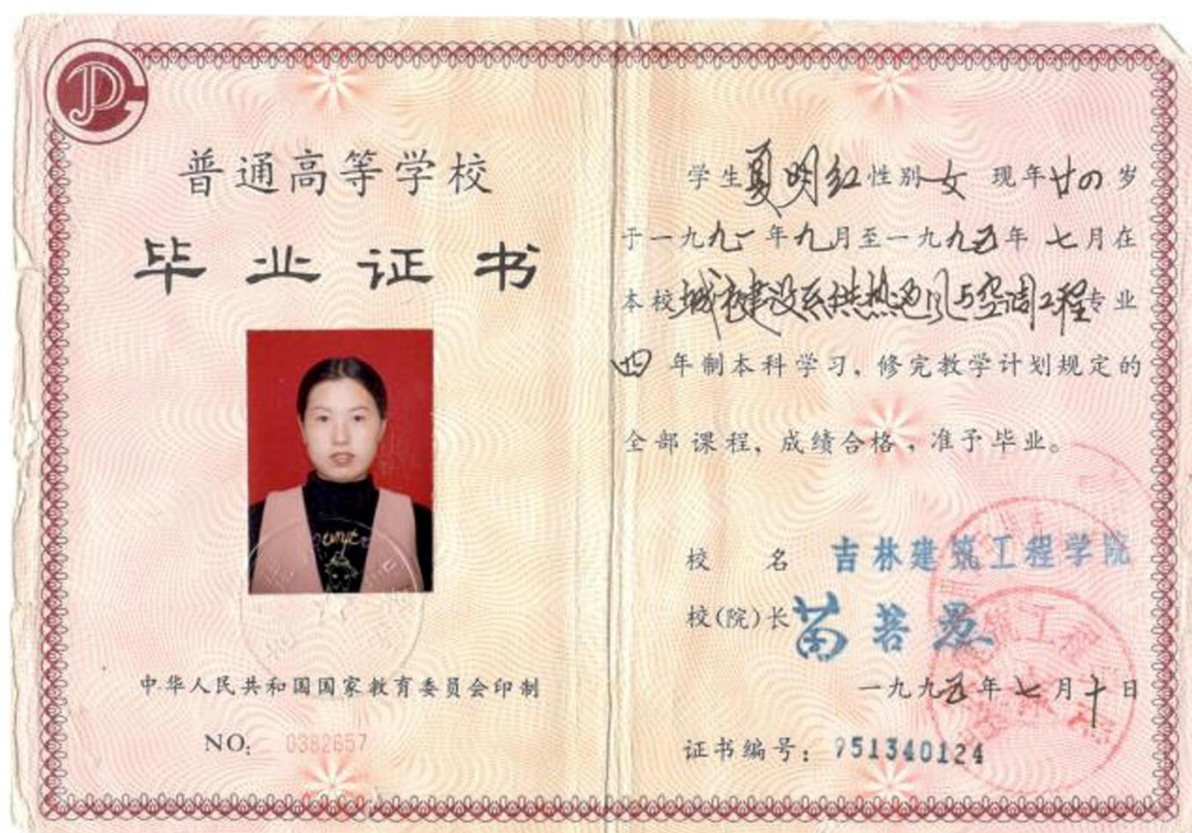 普通高等学校
毕业证书
中华人民共和国国家教育委员会印制
NO: 0382657
学生夏明红性别女 现年廿四岁
于一九九一年九月至一九九五年七月在
本校城市建设系供热通风与空调工程专业
四年制本科学习,修完教学计划规定的
全部课程,成绩合格,准予毕业。
校 名 吉林建筑工程学院
校(院)长 苗
一九九五年七月十日
证书编号: 951340124